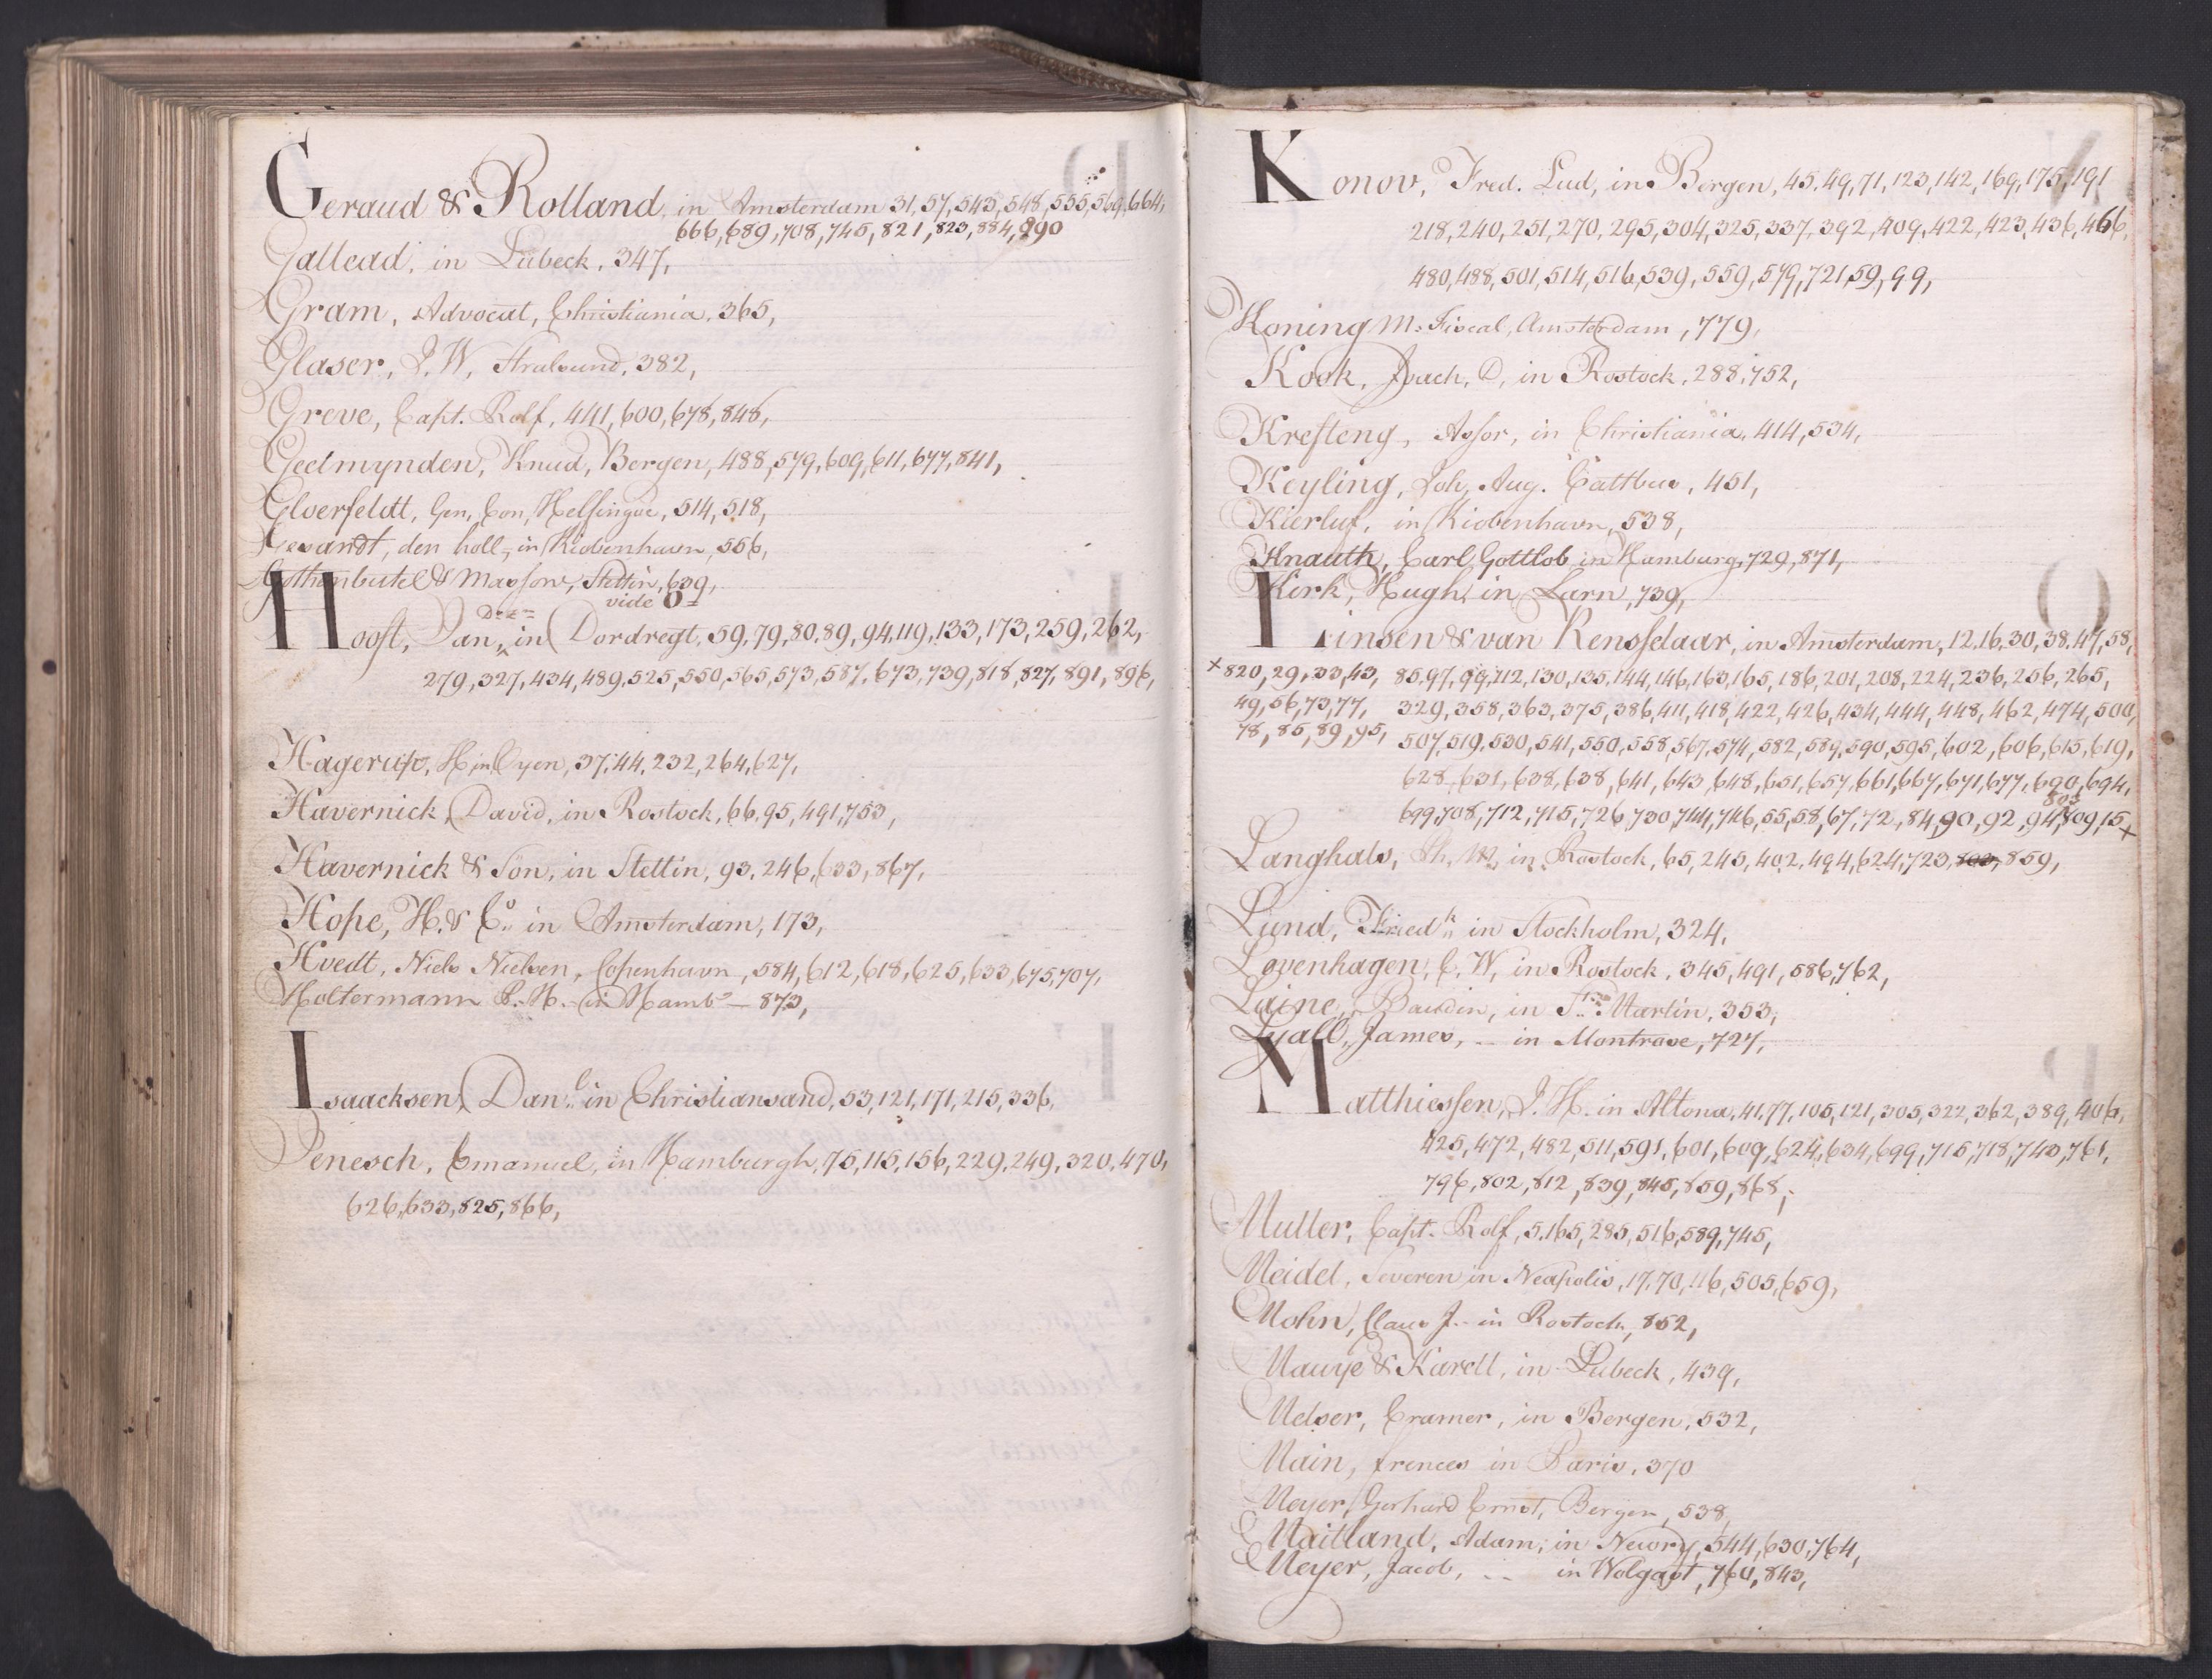 Geraud & Rolland, in Amsterdam 31,57,543,548,555,569,664,
666,689,708,745,821,823,884,890
Gallead, in Lübeck, 347,
Gram, Advocat, Christiania, 365,
Glaser, J. W, Stralsund, 382,
Greve, Capt. Rolf, 441,600,678,848,
Geelmynden, Knud, Bergen, 488,579,609,611,677,841,
Elverfeldt, Gen, Con, Helsingör, 514,518,
Gesandt, den holl, in Kiobenhavn, 556,
& Massow, Stettin, 639,
vide O
Hooft, Dan, in Dordregt, 59,79,80,89,94,119,133,173,259,262,
279,327,434,489,525,550,565,573,587,673,739,818,827,891,896,
Hagerup, H, in Oyen, 37,44,232,264,627,
Havernick, David, in Rostock, 66,95,491,753,
Havernick & Son, in Stettin, 93,246,633,867,
Hope, H. & Co in Amsterdam, 173,
Hvedt, Niels Nielsen, Copenhavn, 584,612,618,625,633,675,707,
Holtermann P. H. in Hambo 873,
Isaacksen, Danl in Christiansand, 53,121,171,215,336,
Jenesch, Emanuel, in Hamburgh, 75,115,156,229,249,320,470,
626,633,825,866,
Konov, Fred. Lud, in Bergen, 45,49,71,123,142,169,175,191
218,240,251,270,295,304,325,337,392,409,422,423,436,466,
480,488,501,514,516,539,559,579,721,59,99,
Koning M: Fiscal, Amsterdam, 779,
Kook, Joach, D, in Rostock, 288,752,
Krefteng, Assor, in Christiania, 414,534,
Keyling, Joh, Aug. Cattbus, 451,
Kierluf, in Kiobenhavn, 538,
Knauth, Carl Gottlob in Hamburg, 729,871,
Kirk, Hugh, in Larn, 739,
Linsen & van Rensselaar, in Amsterdam, 12,16,30,38,47,58,
+820,29,33,43, 85,97,99,112,130,135,144,146,163,165,186,201,208,224,236,256,265,
49,56,73,77, 329,358,363,375,386,411,418,422,426,434,444,448,462,474,500,
78,85,89,95, 507,519,530,541,550,558,567,574,582,589,590,595,602,606,615,619,
628,631,638,638,641,643,648,651,657,661,667,671,677,690,694,
803
699,708,712,715,726,730,744,746,55,58,67,72,84,90,92,94,809,15+
Langhals, in Rostock, 65,245,402,494,624,723,802,859,
Lund, Friedk in Stockholm, 324,
Lovenhagen, C. W, in Rostock, 345,491,586,762,
Laine, Baudin, in St. Martin, 353,
Lyall, James, in Montrose, 727,
Matthiessen, J. H. in Altona, 41,77,105,121,305,322,362,389,406,
425,472,482,511,591,601,609,624,634,699,715,718,743,761,
796,802,812,839,845,859,868,
Muller, Capt. Rolf, 5,165,285,516,589,745,
Meidel, Severen in Neapolis, 17,70,116,505,659,
Mohn, Claus J. in Rostock, 852,
Mauye & Karell, in Lubeck, 439,
Melser, Cramer, in Bergen, 532,
Main, frences in Paris, 370
Meyer, Gerhard Ernst, Bergen, 538,
Maitland, Adam, in Newry, 544,630,764,
Meyer, Jacob, in Wolgast, 760,843,